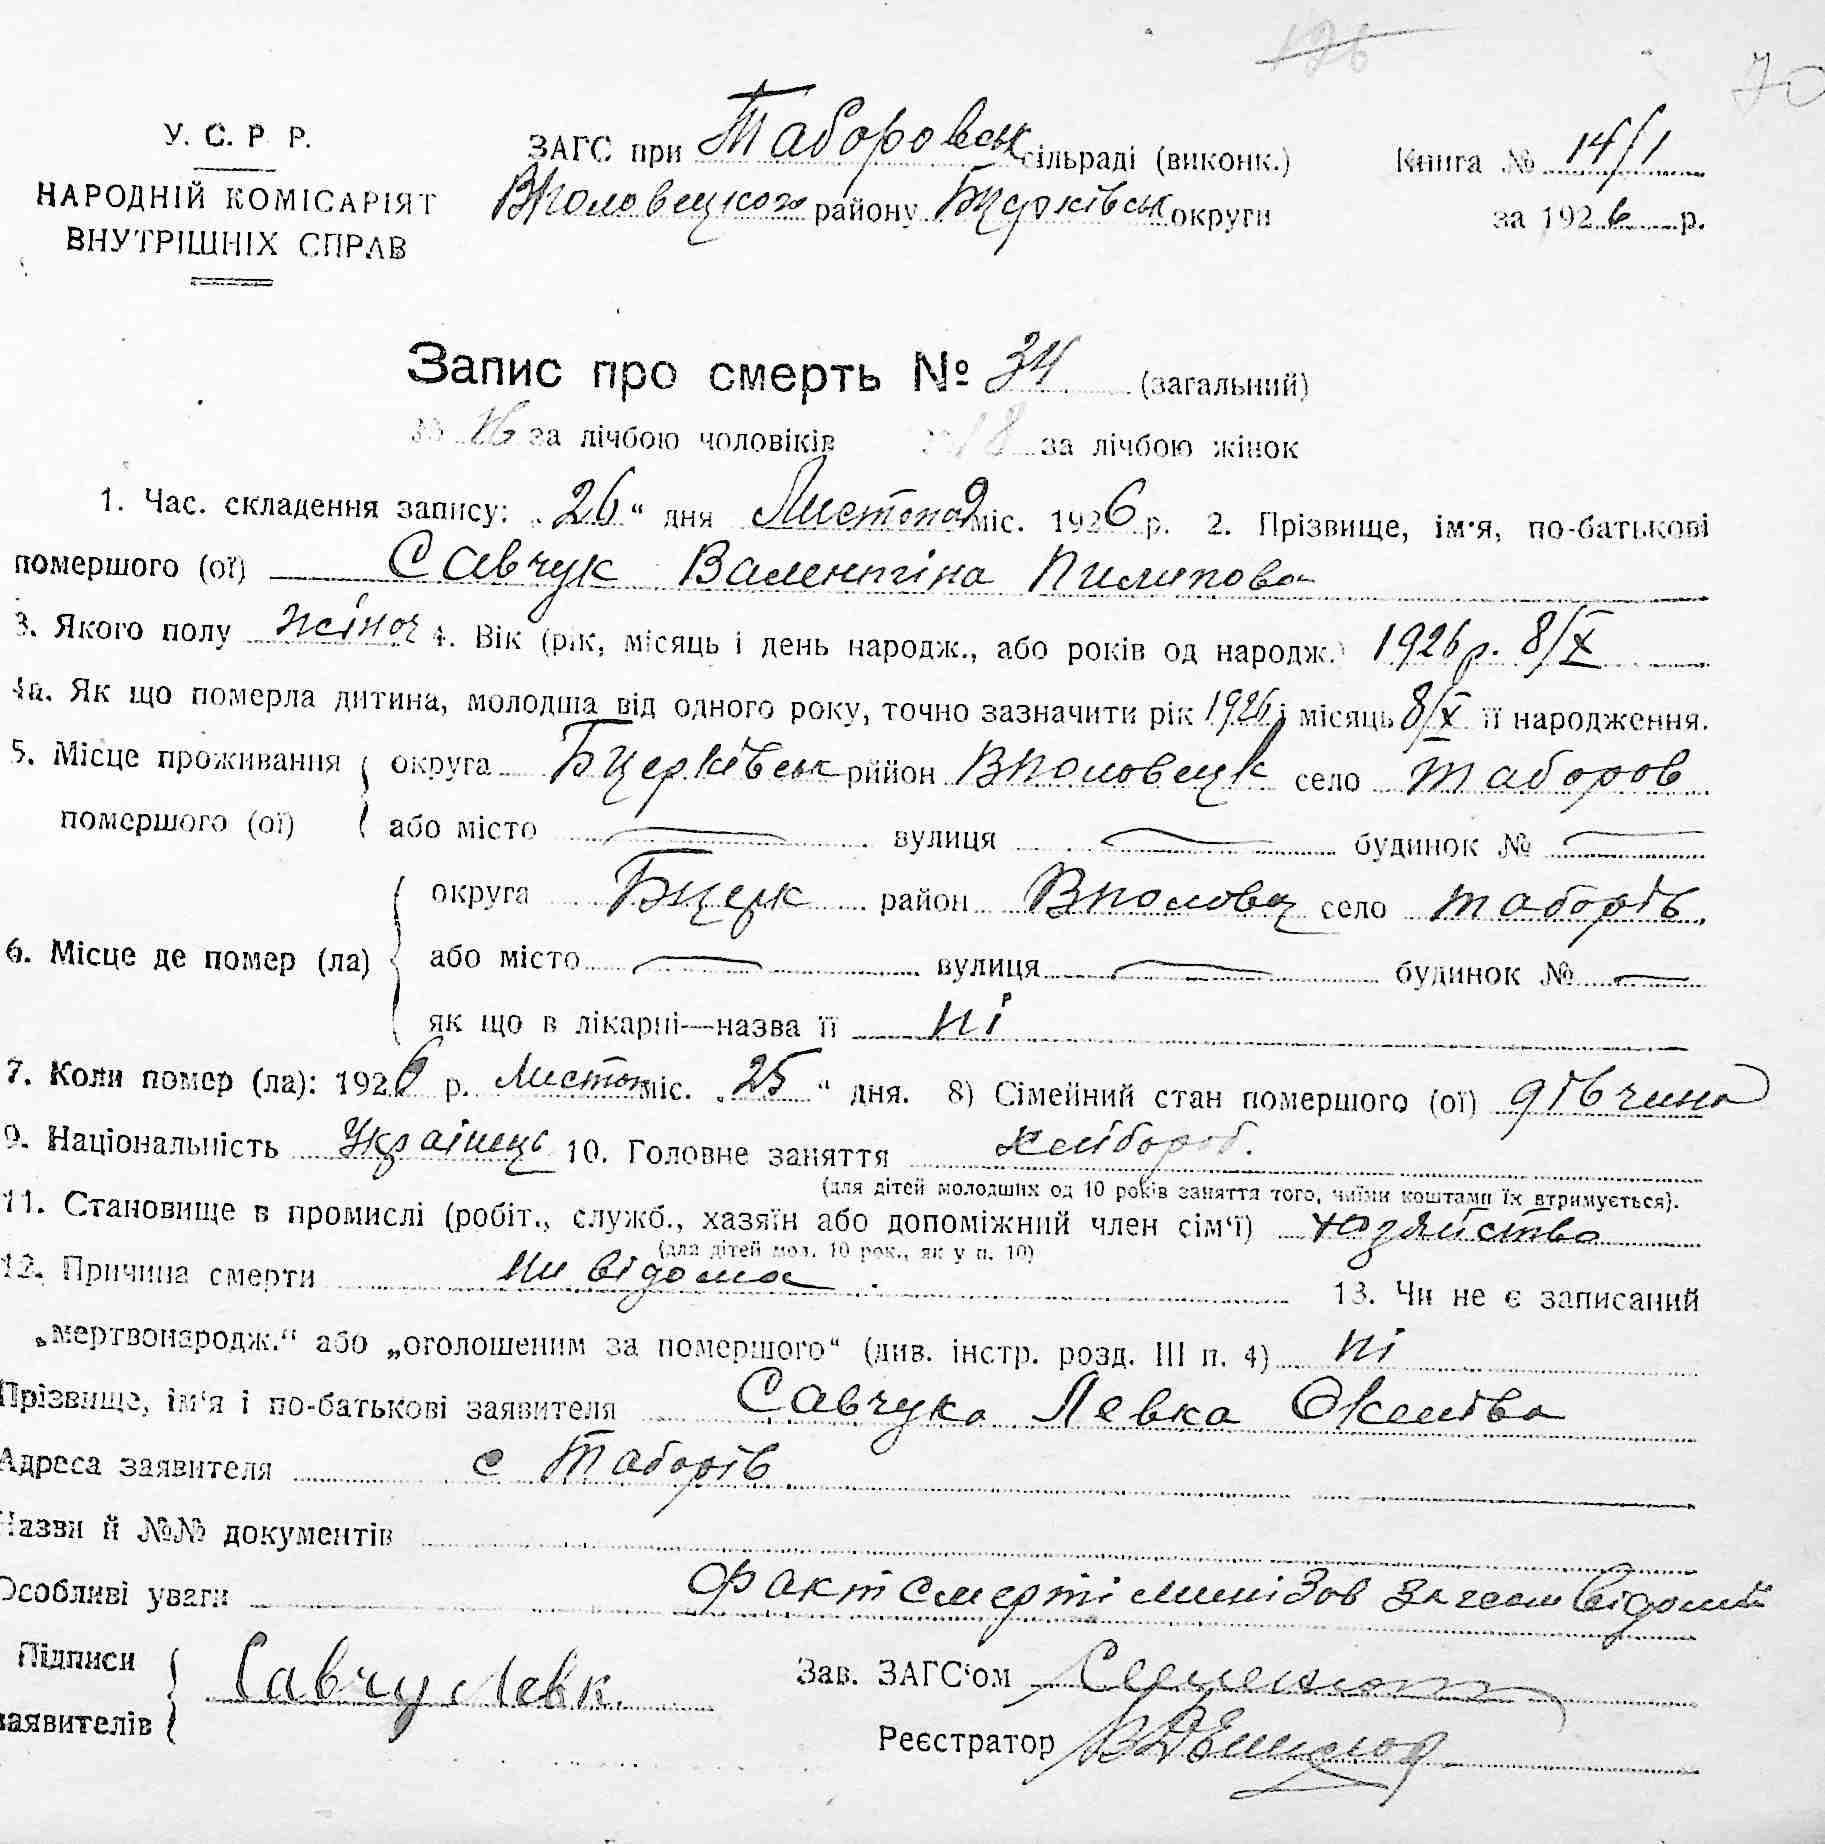 126
70
У. С. Р. Р.
НАРОДНІЙ КОМІСАРІЯТ
ВНУТРІШНІХ СПРАВ
ЗАГС при Таборовськ сільраді (виконк.)
Вполовецкого району Бцерківськ округи
Книга № 14/1
за 1926 р.
Запис про смерть № 34 (загальний)
№ 16 за лічбою чоловіків № 18 за лічбою жінок
1. Час. складення запису: „26“ дня Листопад міс. 1926 р. 2. Прізвище, ім'я, по-батькові
помершого (ої) Савчук Валентіна Пилипова
3. Якого полу жіноч 4. Вік (рік, місяць і день народж., або років од народж.) 1926 р. 8/X
4а. Як що померла дитина, молодша від одного року, точно зазначити рік 1926 і місяць 8/X її народження.
5. Місце проживання округа Бцерківськ рййон Вполовецк село Таборов
помершого (ої) або місто — вулиця — будинок № —
округа Бцерк район Вполовец село Таборів.
6. Місце де помер (ла) або місто — вулиця — будинок № —
як що в лікарні—назва її ні
7. Коли помер (ла): 1926 р. Листоп міс. „25“ дня. 8) Сімейний стан помершого (ої) дівчина
9. Національність Українець 10. Головне заняття хлібороб.
(для дітей молодших од 10 років заняття того, чиїми коштами їх втримується).
11. Становище в промислі (робіт., служб., хазяїн або допоміжний член сім'ї) хозяйство
(для дітей мол. 10 рок., як у п. 10)
12. Причина смерти ни відома. 13. Чи не є записаний
„мертвонародж.“ або „оголошеним за помершого“ (див. інстр. розд. III п. 4) ні
Прізвище, ім'я і по-батькові заявителя Савчука Левка
Адреса заявителя с Таборів
Назви й №№ документів
Особливі уваги Факт смерті відомий
Підписи
заявителів Савчу Левк.
Зав. ЗАГС'ом
Реєстратор